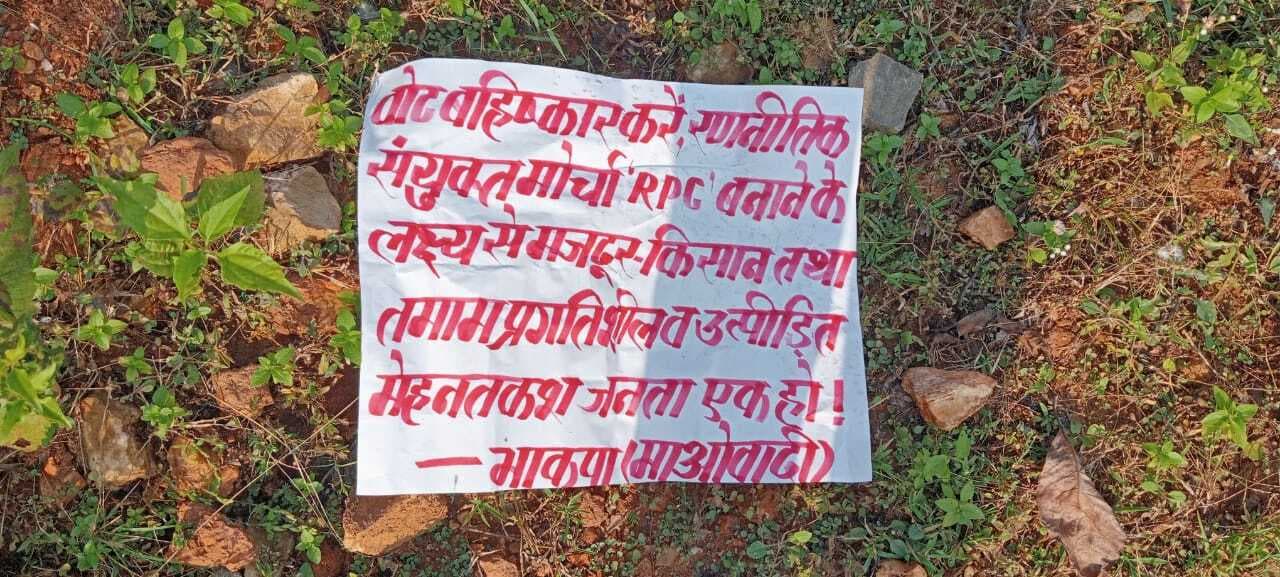 वोट बहिष्कार करें, रणनीतिक
संयुक्त मोर्चा 'RPC' बनाने के
लक्ष्य से मजदूर-किसान तथा
तमाम प्रगतिशील व उत्पीड़ित
मेहनतकश जनता एक हो!
— भाकपा (माओवादी)